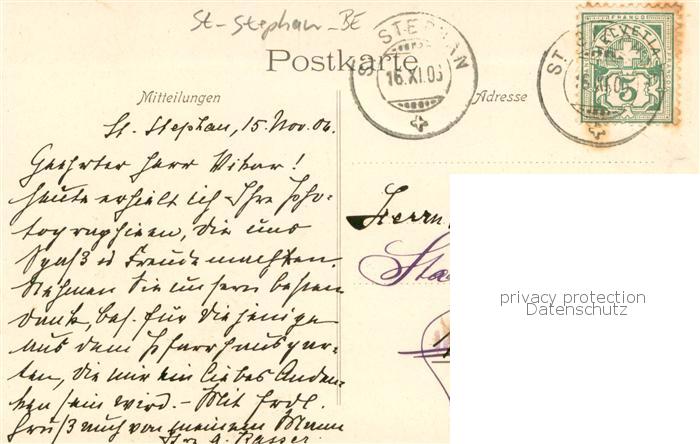 St-Stephan-BE
Postkarte
ST. STEPHAN
16.XI.05
HELVETIA
FRANCO
5
Mitteilungen
Adresse
St. Stephan, 15. Nov. 06.
Geehrter Herr Vikar!
Heute erhielt ich Ihre Pho-
tographieen, die uns
Spaß & Freude machten.
Nehmen Sie unsern besten
Dank, bes. für diejenige
aus dem Pfarrhausgar-
ten, die mir ein liebes Anden-
ken sein wird. - Mit frdl.
Gruß auch von meinem Mann
Herrn
privacy protection
Datenschutz